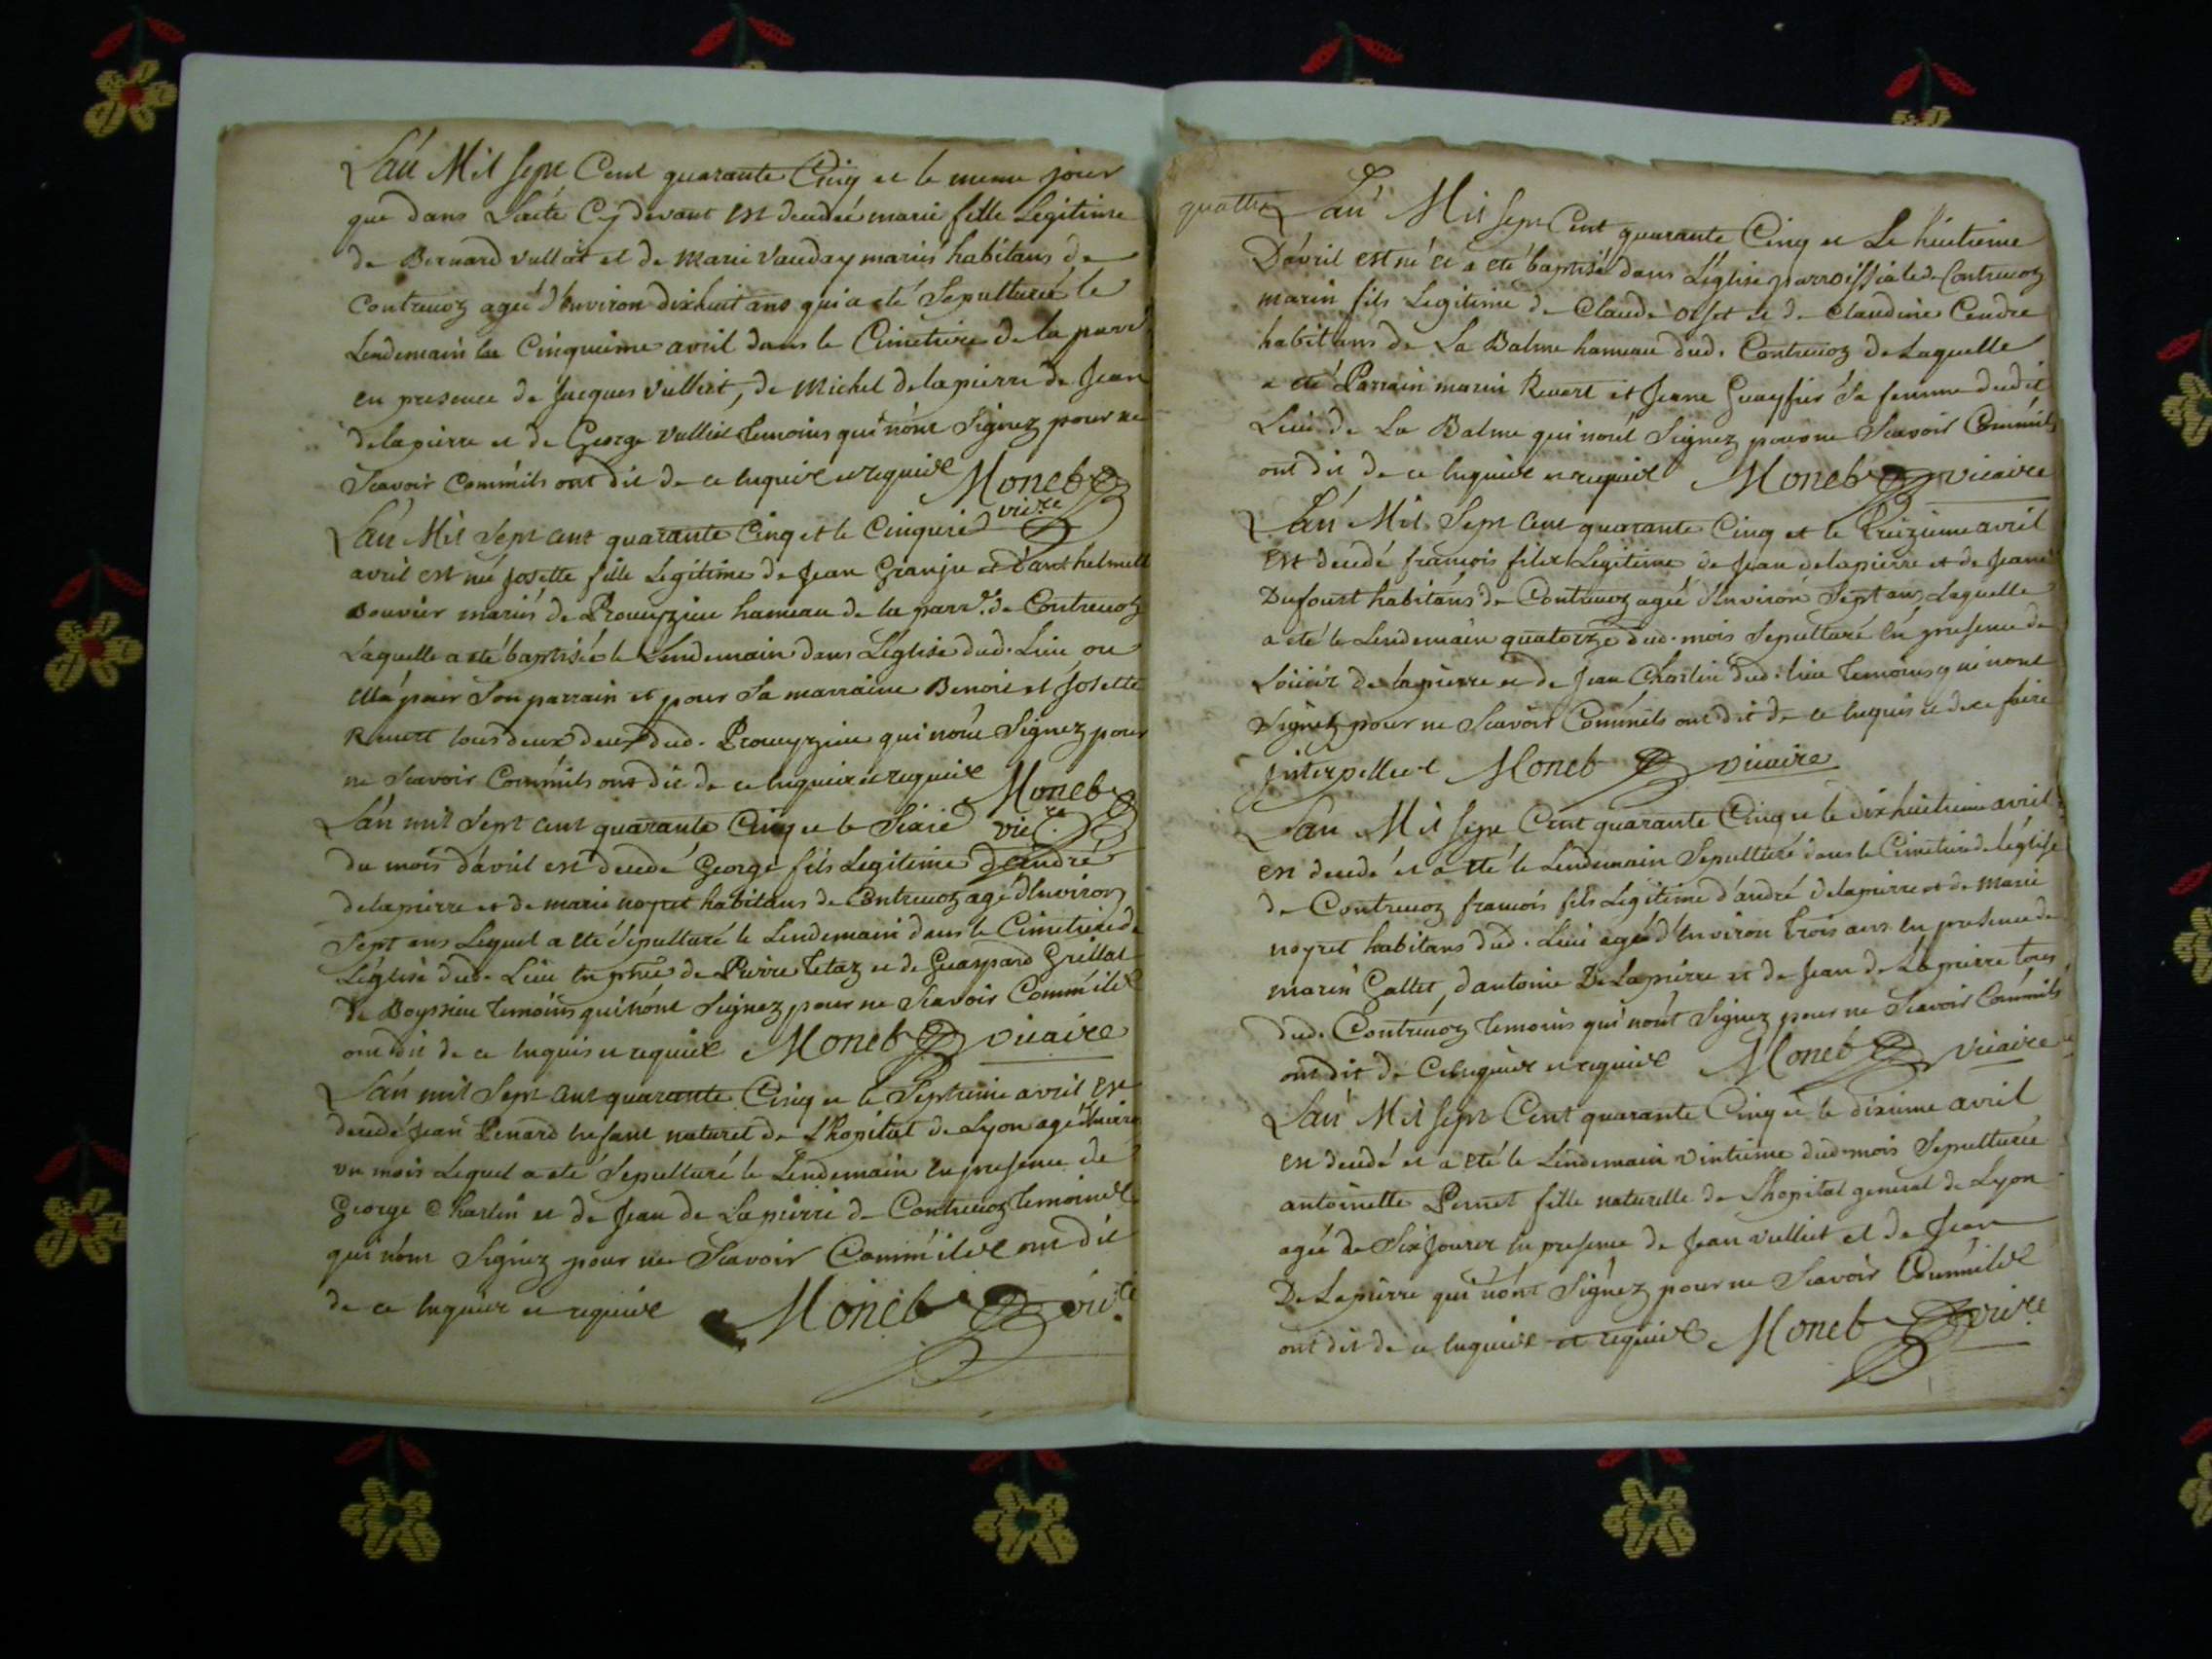 L'an Mil sept Cent quarante Cinq et le meme jour
que dans L'acte Cy devant est decedeé marie fille Legitime
de Bernard vulliot et de marie vauday mariés habitans de
Contrevoz ageé d'Environ dixhuit ans qui a eté Sepulturée le
Lendemain Cinquieme avril dans le Cimetiere de la parr
en presence de Jacques vulliet, de Michel delapierre de Jean
delapierre et de George vulliet temoins qui n'ont Signez pour ne
Scavoir Comm'ils ont dit de ce Enquis et requis Monet
vic.re
L'an Mil Sept cent quarante Cinq et le Cinquie
avril est neé Josette fille Legitime de Jean Granju et d'anthelmette
Bouvier mariés de Promeyzieu hameau de la parr. de Contrevoz
Laquelle a eté baptisée le Lendemain dans L'église dud. Lieu ou
Ella pour Son parrain et pour Sa marraine Benoit et Josette
Revert tous deux dud. Promeyzieu qui n'ont Signez pour
ne Scavoir Comm'ils ont dit de ce Enquis et requis Monet
L'an mil Sept cent quarante Cinq et le Sixie vic.re
du mois d'avril est decedé George fils Legitime d'andré
delapierre et de marie noyret habitans de Contrevoz agé d'Environ
Sept ans Lequel a eté Sepulturé le Lendemain dans le Cimetiere de
L'église dud. Lieu En pnce de Pierre Tetaz et de Guaspard Grillat
de Boyssieu temoins qui n'ont Signez pour ne Scavoir Comm'ils
ont dit de ce Enquis et requis Monet vicaire
L'an mil Sept cent quarante Cinq et le Septieme avril est
decedé Jean Penard Enfant naturel de L'hopital de Lyon agé d'Environ
un mois Lequel a eté Sepulturé le Lendemain En presence de
George Charlin et de Jean de Lapierre de Contrevoz temoins
qui n'ont Signez pour ne Scavoir Comm'ils ont dit
de ce Enquis et requis Monet vic.
quattre L'an Mil sept Cent quarante Cinq et Le huitieme
D'avril est né et a eté baptisé dans L'église parroissiale de Contrevoz
marin fils Legitime de Claude orset et de Claudine Cendre
habitans de La Balme hameau dud. Contrevoz de Laquelle
a eté Parrain marin Revert et Jeane Guayfier Sa femme dudit
Lieu de La Balme qui n'ont Signez pour ne Scavoir Comm'ils
ont dit de ce Enquis et requis Monet vicaire
L'an Mil Sept cent quarante Cinq et le treizieme avril
est decedé francois fils Legitime de Jean delapierre et de Jeane
Dufourt habitans de Contrevoz ageé d'Environ Sept ans Laquelle
a eté le Lendemain quatorze dud. mois Sepulturé En presence de
Loüis de lapierre et de Jean Charlin dud. lieu temoins qui n'ont
Signez pour ne Scavoir Comm'ils ont dit de ce Enquis et de ce faire
Interpellez Monet vicaire
L'an Mil sept Cent quarante Cinq et le dixhuitieme avril
est decedé et a eté le Lendemain Sepulturé dans le Cimetiere de l'église
de Contrevoz francois fils Legitime d'andré delapierre et de marie
noyret habitans dud. Lieu ageé d'Environ trois ans En presence de
marin Gallet, d'antoine De Lapierre et de Jean de Lapierre tous
dud. Contrevoz temoins qui n'ont Signez pour ne Scavoir Comm'ils
ont dit de Ce Enquis et requis Monet vicaire
L'an Mil sept Cent quarante Cinq et le dixieme avril
est decedé et a eté le Lendemain vintieme dud. mois Sepulturée
antoinette Pernet fille naturelle de L'hopital general de Lyon
ageé de Six Jours En presence de Jean vulliet et de Jean
De Lapierre qui n'ont Signez pour ne Scavoir Comm'ils
ont dit de ce Enquis et requis Monet vic.re